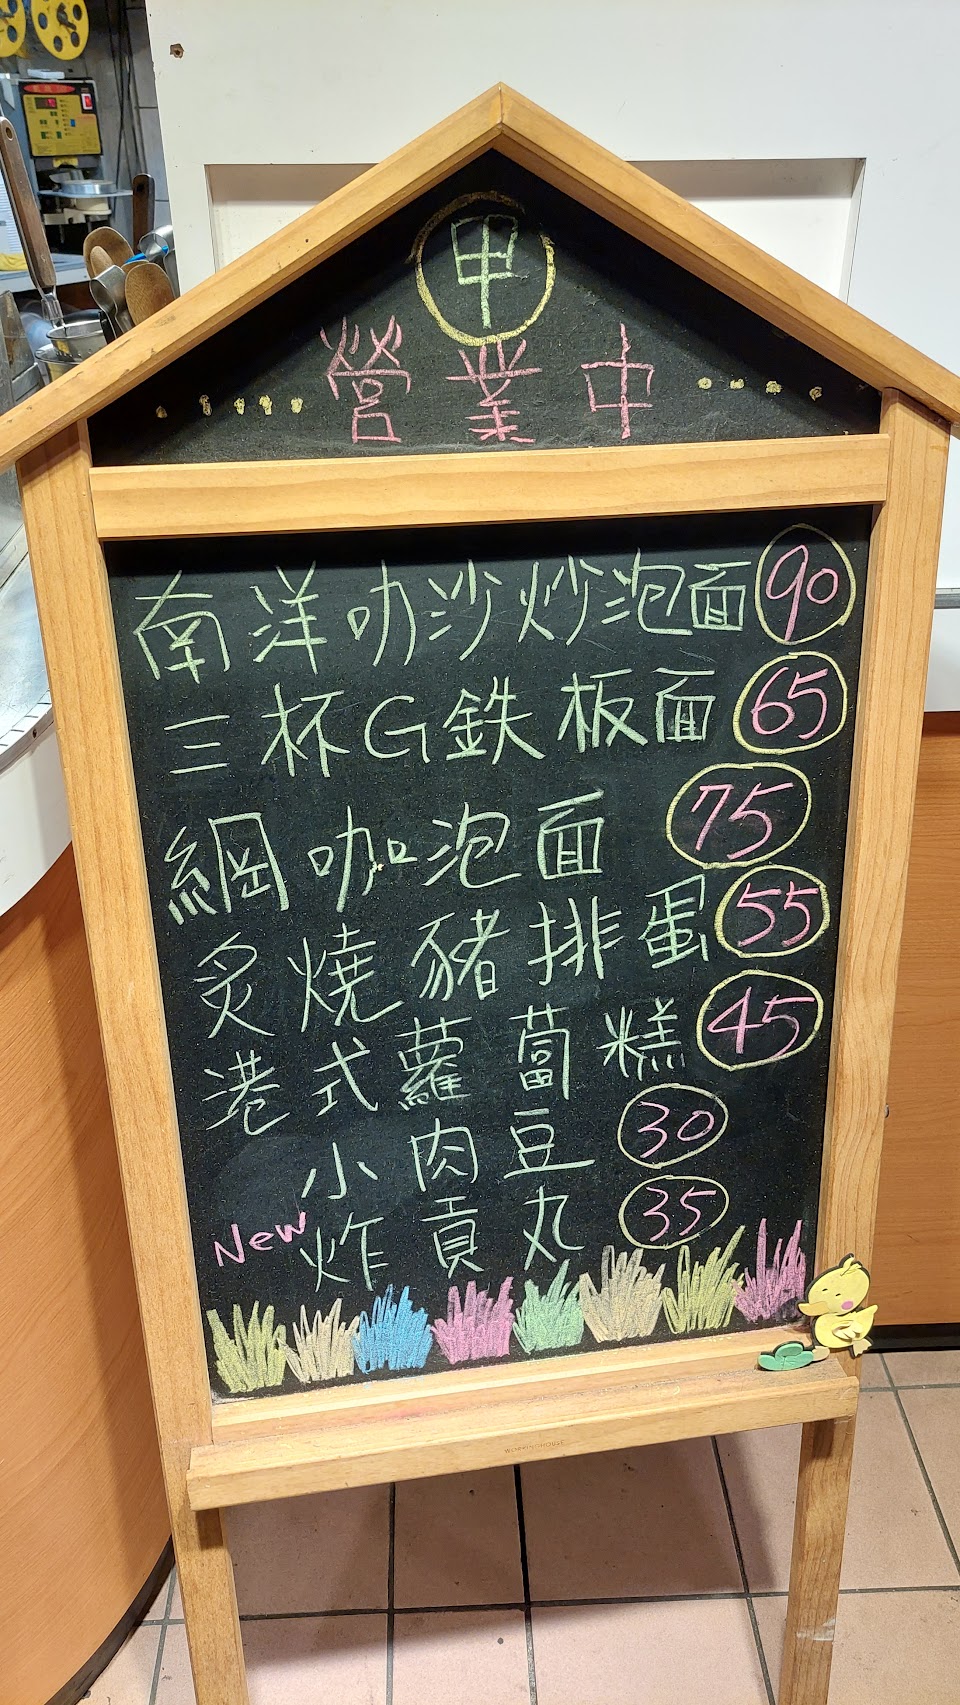 甲
營業中
南洋叻沙炒泡面 90
三杯G鉄板面 65
綱咖泡面 75
炙燒豬排蛋 55
港式蘿蔔糕 45
小肉豆 30
New 炸貢丸 35